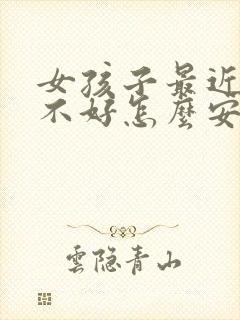 女孩子最近
不好怎麼安
雲隐青山